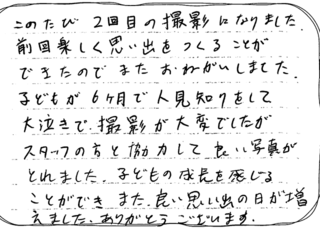 このたび 2回目の撮影になりました。
前回楽しく思い出をつくることが
できたので またおねがいしました。
子どもが6ヶ月で人見知りをして
大泣きで、撮影が大変でしたが
スタッフの方と協力して良い写真が
とれました。子どもの成長を感じる
ことができ また、良い思い出の日が増
えました。ありがとうございます。